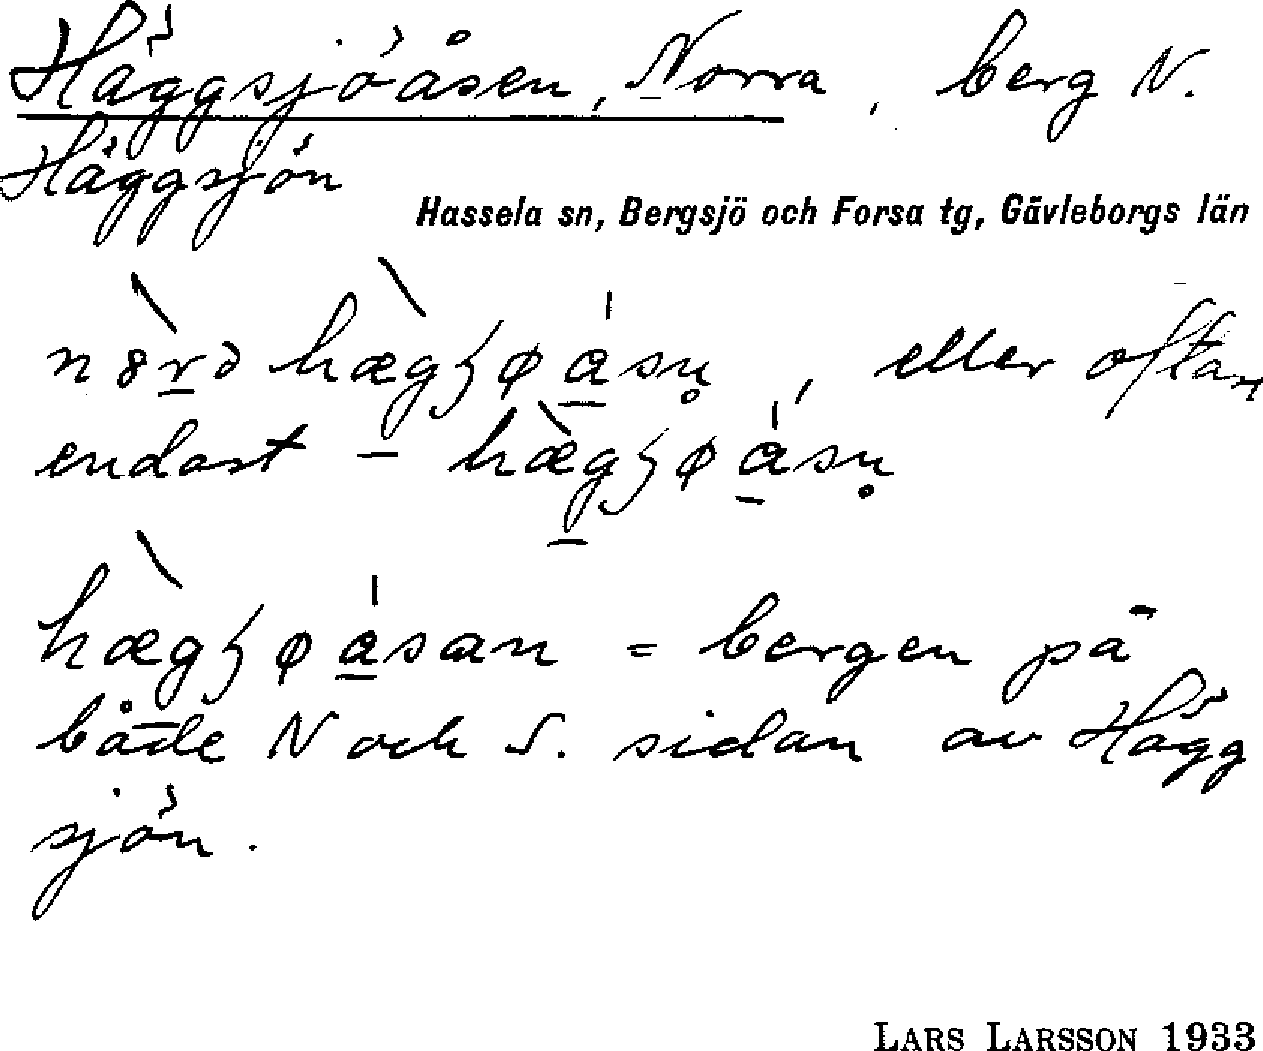 Häggsjöåsen, Norra, berg N.
Häggsjön
Hassela sn, Bergsjö och Forsa tg, Gävleborgs län
eller oftare
endast –
= bergen på
både N och S. sidan av Hägg
sjön.
LARS LARSSON 1933